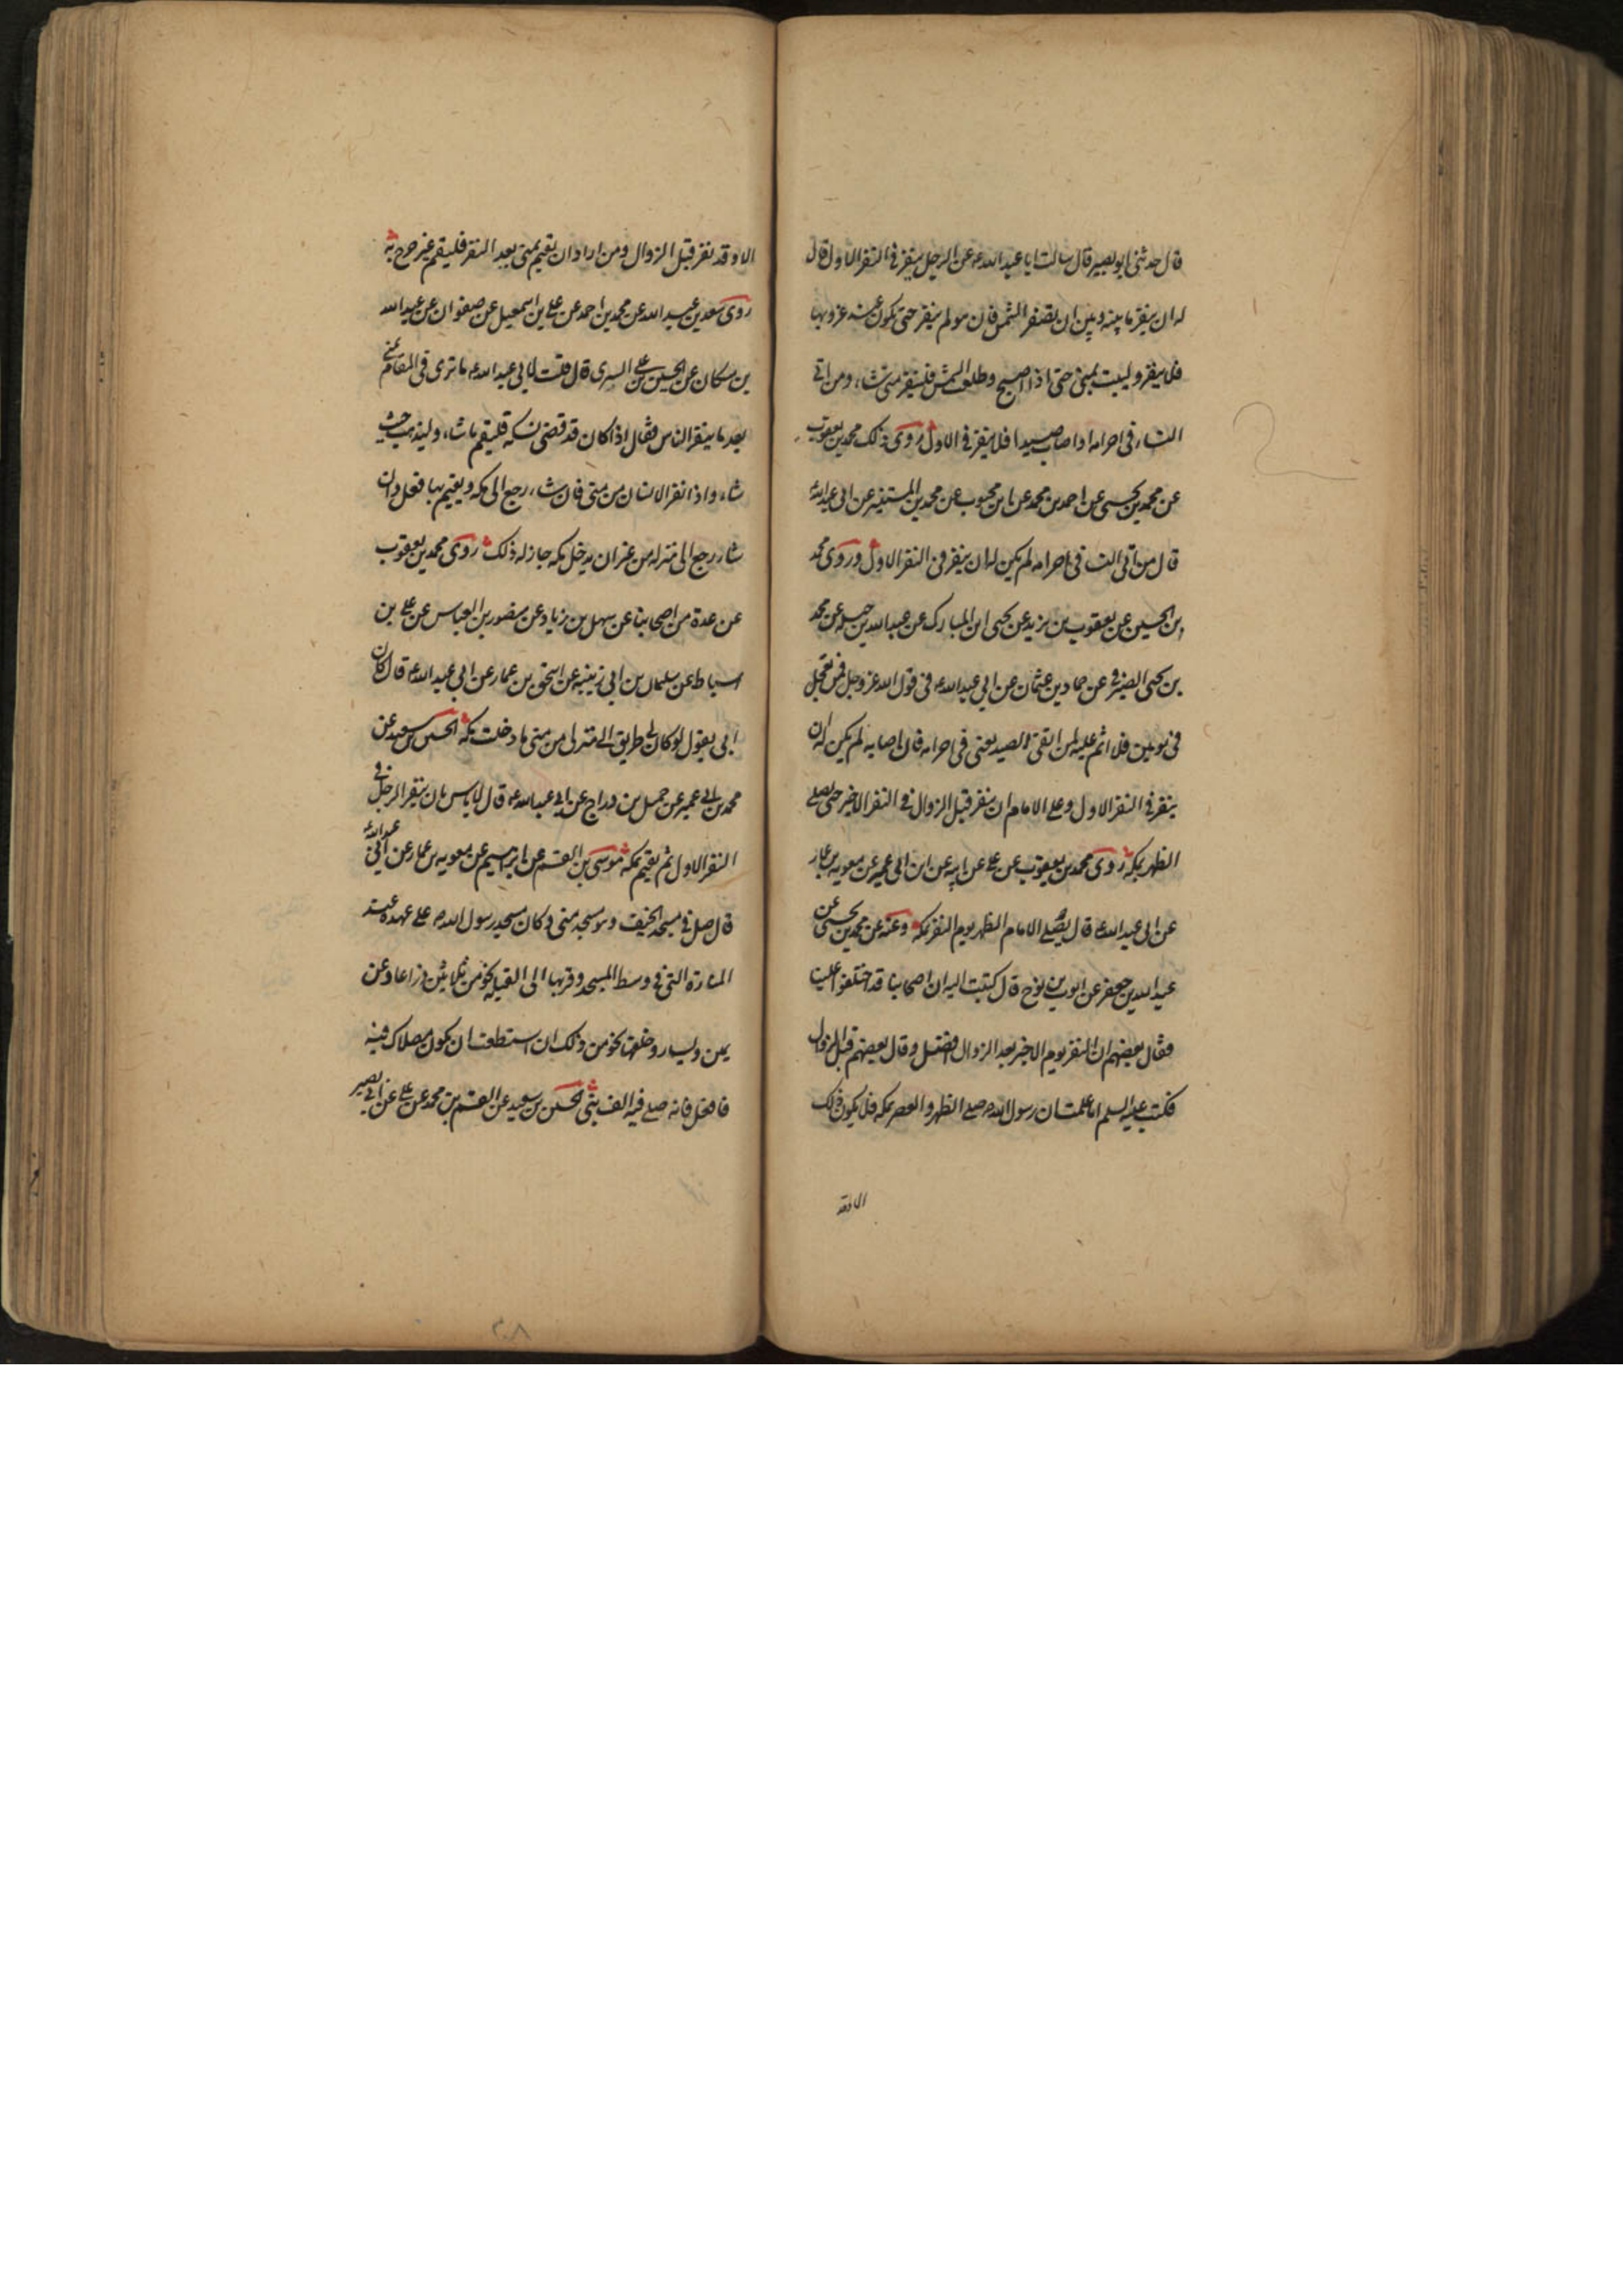 قال حدثنی ابو بصیر قال سالت ابا عبد الله ع عن الرجل ینفر فی النفر الاول قال
له ان ینفر ما بینه و بین ان تصفر الشمس فان هو لم ینفر حتی یکون عند غروبها
فلا ینفر و لیبت بمنی حتی اذا اصبح و طلعت الشمس فلینفر متی شاء و من اتی
النساء فی احرامه او اصاب صیدا فلا ینفر فی الاول روی ذلک محمد بن یعقوب
عن محمد بن یحیی عن احمد بن محمد عن ابن محبوب عن محمد بن المستنیر عن ابی عبد الله
قال من اتی النساء فی احرامه لم یکن له ان ینفر فی النفر الاول و روی محمد
بن الحسین عن یعقوب بن یزید عن یحیی ابن المبارک عن عبد الله بن جبله عن محمد
بن یحیی الصیرفی عن حماد بن عثمان عن ابی عبد الله ع فی قول الله عز و جل فمن تعجل
فی یومین فلا اثم علیه لمن اتقی الصید یعنی فی احرامه فان اصابه لم یکن له ان
ینفر فی النفر الاول و علی الامام ان ینفر قبل الزوال فی النفر الاخیر حتی یصلی
الظهر بمکه روی محمد بن یعقوب عن علی عن ابیه عن ابن ابی عمیر عن معویه بن عمار
عن ابی عبد الله ع قال یصلی الامام الظهر یوم النفر بمکه وعنه عن محمد بن یحیی عن
عبد الله بن جعفر عن ایوب بن نوح قال کتبت الیه ان اصحابنا قد اختلفوا علینا
فقال بعضهم ان النفر یوم الاخیر بعد الزوال افضل و قال بعضهم قبل الزوال
فکتب علیه السلم اما علمت ان رسول الله ص صلی الظهر و العصر بمکه فلا یکون ذلک
الا وقد
الا و قد نفر قبل الزوال و من اراد ان یقیم بمنی بعد النفر فلیقم غیر حرج به
روی سعد بن عبد الله عن محمد بن احمد عن علی بن اسمعیل عن صفوان عن عبد الله
بن مسکان عن الحسین عن علی السری قال قلت لابی عبد الله ع ما تری فی المقام بمنی
بعد ما ینفر الناس فقال اذا کان قد قضی نسکه فلیقم ما شاء و لیذهب حیث
شاء و اذا نفر الانسان من منی فان شاء رجع الی مکه و یقیم بها فعل و ان
شاء رجع الی منزله من غیر ان یدخل مکه جاز له ذلک روی محمد بن یعقوب
عن عدة من اصحابنا عن سهل بن زیاد عن منصور بن العباس عن علی بن
اسباط عن سلیمان بن ابی زینبه عن اسحق بن عمار عن ابی عبد الله ع قال کان
ابی یقول لو کان لی طریق الی منزلی من منی ما دخلت مکه الحسین بن سعید عن
محمد بن ابی عمیر عن جمیل بن دراج عن ابی عبد الله ع قال لا باس بان ینفر الرجل فی
النفر الاول ثم یقیم بمکه موسی بن القسم عن ابرهیم عن معویه بن عمار عن ابی عبد الله
قال صل فی مسجد الخیف و هو مسجد منی و کان مسجد رسول الله ص علی عهده عند
المنارة التی فی وسط المسجد و فوقها الی القبلة نحو من ثلاثین ذراعا و عن
یمین و یسار و خلفها نحو من ذلک ان استطعت ان یکون مصلاک فیه
فافعل فانه صلی فیه الف نبی الحسین بن سعید عن القسم بن محمد عن علی عن ابی بصیر